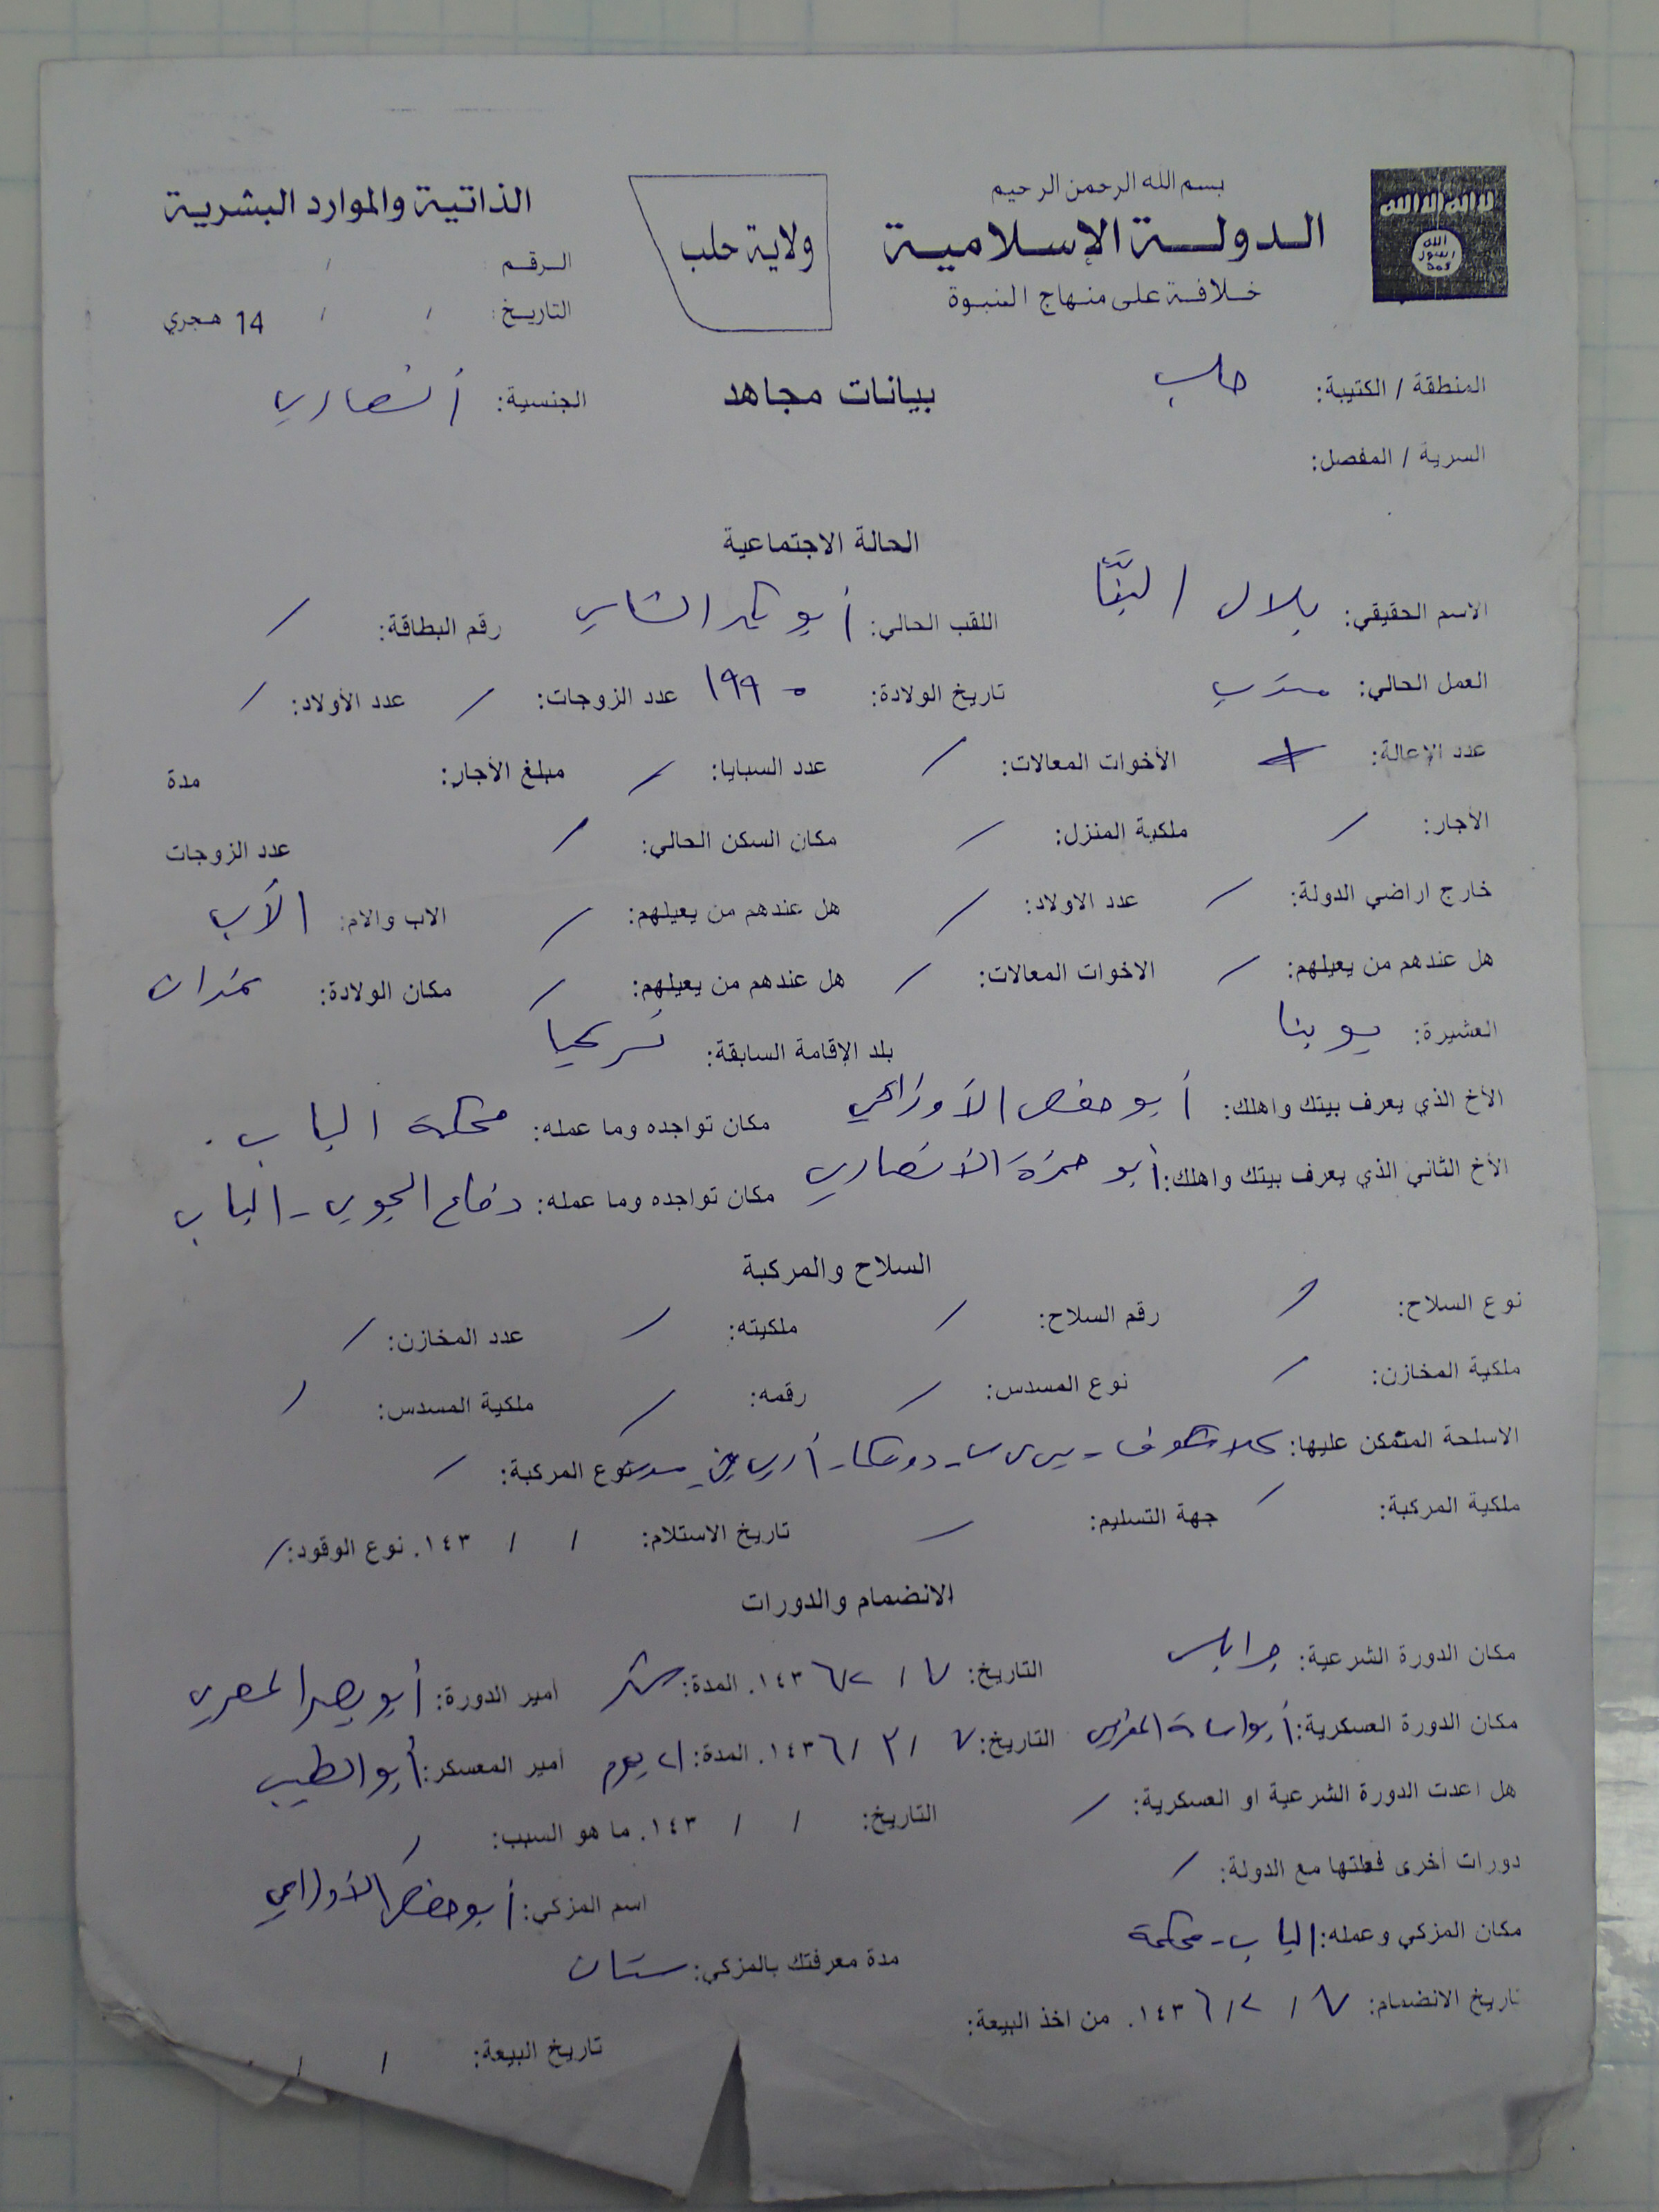 لا اله الا الله
الله
رسول
محمد
بسم الله الرحمن الرحيم
الدولة الإسلامية
خلافة على منهاج النبوة
ولاية حلب
الذاتية والموارد البشرية
الرقم: /
التاريخ: / / 14 هجري
المنطقة / الكتيبة: حلب
بيانات مجاهد
الجنسية: أنصاري
السرية / المفصل:
الحالة الاجتماعية
الاسم الحقيقي: بلال البنَّا اللقب الحالي: أبو بكر الشامي رقم البطاقة: /
العمل الحالي: تاريخ الولادة: ١٩٩٠ عدد الزوجات: / عدد الأولاد: /
عدد الإعالة: الأخوات المعالات: / عدد السبايا: / مبلغ الأجار: مدة
الأجار: / ملكية المنزل: / مكان السكن الحالي: / عدد الزوجات
خارج اراضي الدولة: / عدد الاولاد: / هل عندهم من يعيلهم: / الاب والام: الأب
هل عندهم من يعيلهم: / الاخوات المعالات: / هل عندهم من يعيلهم: / مكان الولادة:
العشيرة: يوبنا بلد الإقامة السابقة: تركيا
الأخ الذي يعرف بيتك واهلك: أبو حفص الأوزاعي مكان تواجده وما عمله: محكمة الباب.
الأخ الثاني الذي يعرف بيتك واهلك: أبو حمزة الأنصاري مكان تواجده وما عمله: دفاع الجوي - الباب
السلاح والمركبة
نوع السلاح: / رقم السلاح: / ملكيته: / عدد المخازن: /
ملكية المخازن: / نوع المسدس: / رقمه: / ملكية المسدس: /
الاسلحة المتمكن عليها: كلاشنكوف - بي كي سي - دوشكا - نوع المركبة: /
ملكية المركبة: / جهة التسليم: / تاريخ الاستلام: / / ١٤٣. نوع الوقود: /
الانضمام والدورات
مكان الدورة الشرعية: جرابلس التاريخ: ٧ / ٢ / ١٤٣٦. المدة: شهر أمير الدورة: أبو بصير المصري
مكان الدورة العسكرية: أبو اسامة المغربي التاريخ: ٧ / ٣ / ١٤٣٦. المدة: يوم أمير المعسكر: أبو الطيب
هل اعدت الدورة الشرعية او العسكرية: / التاريخ: / / ١٤٣. ما هو السبب: /
دورات أخرى فعلتها مع الدولة: / اسم المزكي: أبو حفص الأوزاعي
مكان المزكي وعمله: الباب - محكمة مدة معرفتك بالمزكي: سنتان
تاريخ الانضمام: ٧ / ٢ / ١٤٣٦. من اخذ البيعة: تاريخ البيعة: / /